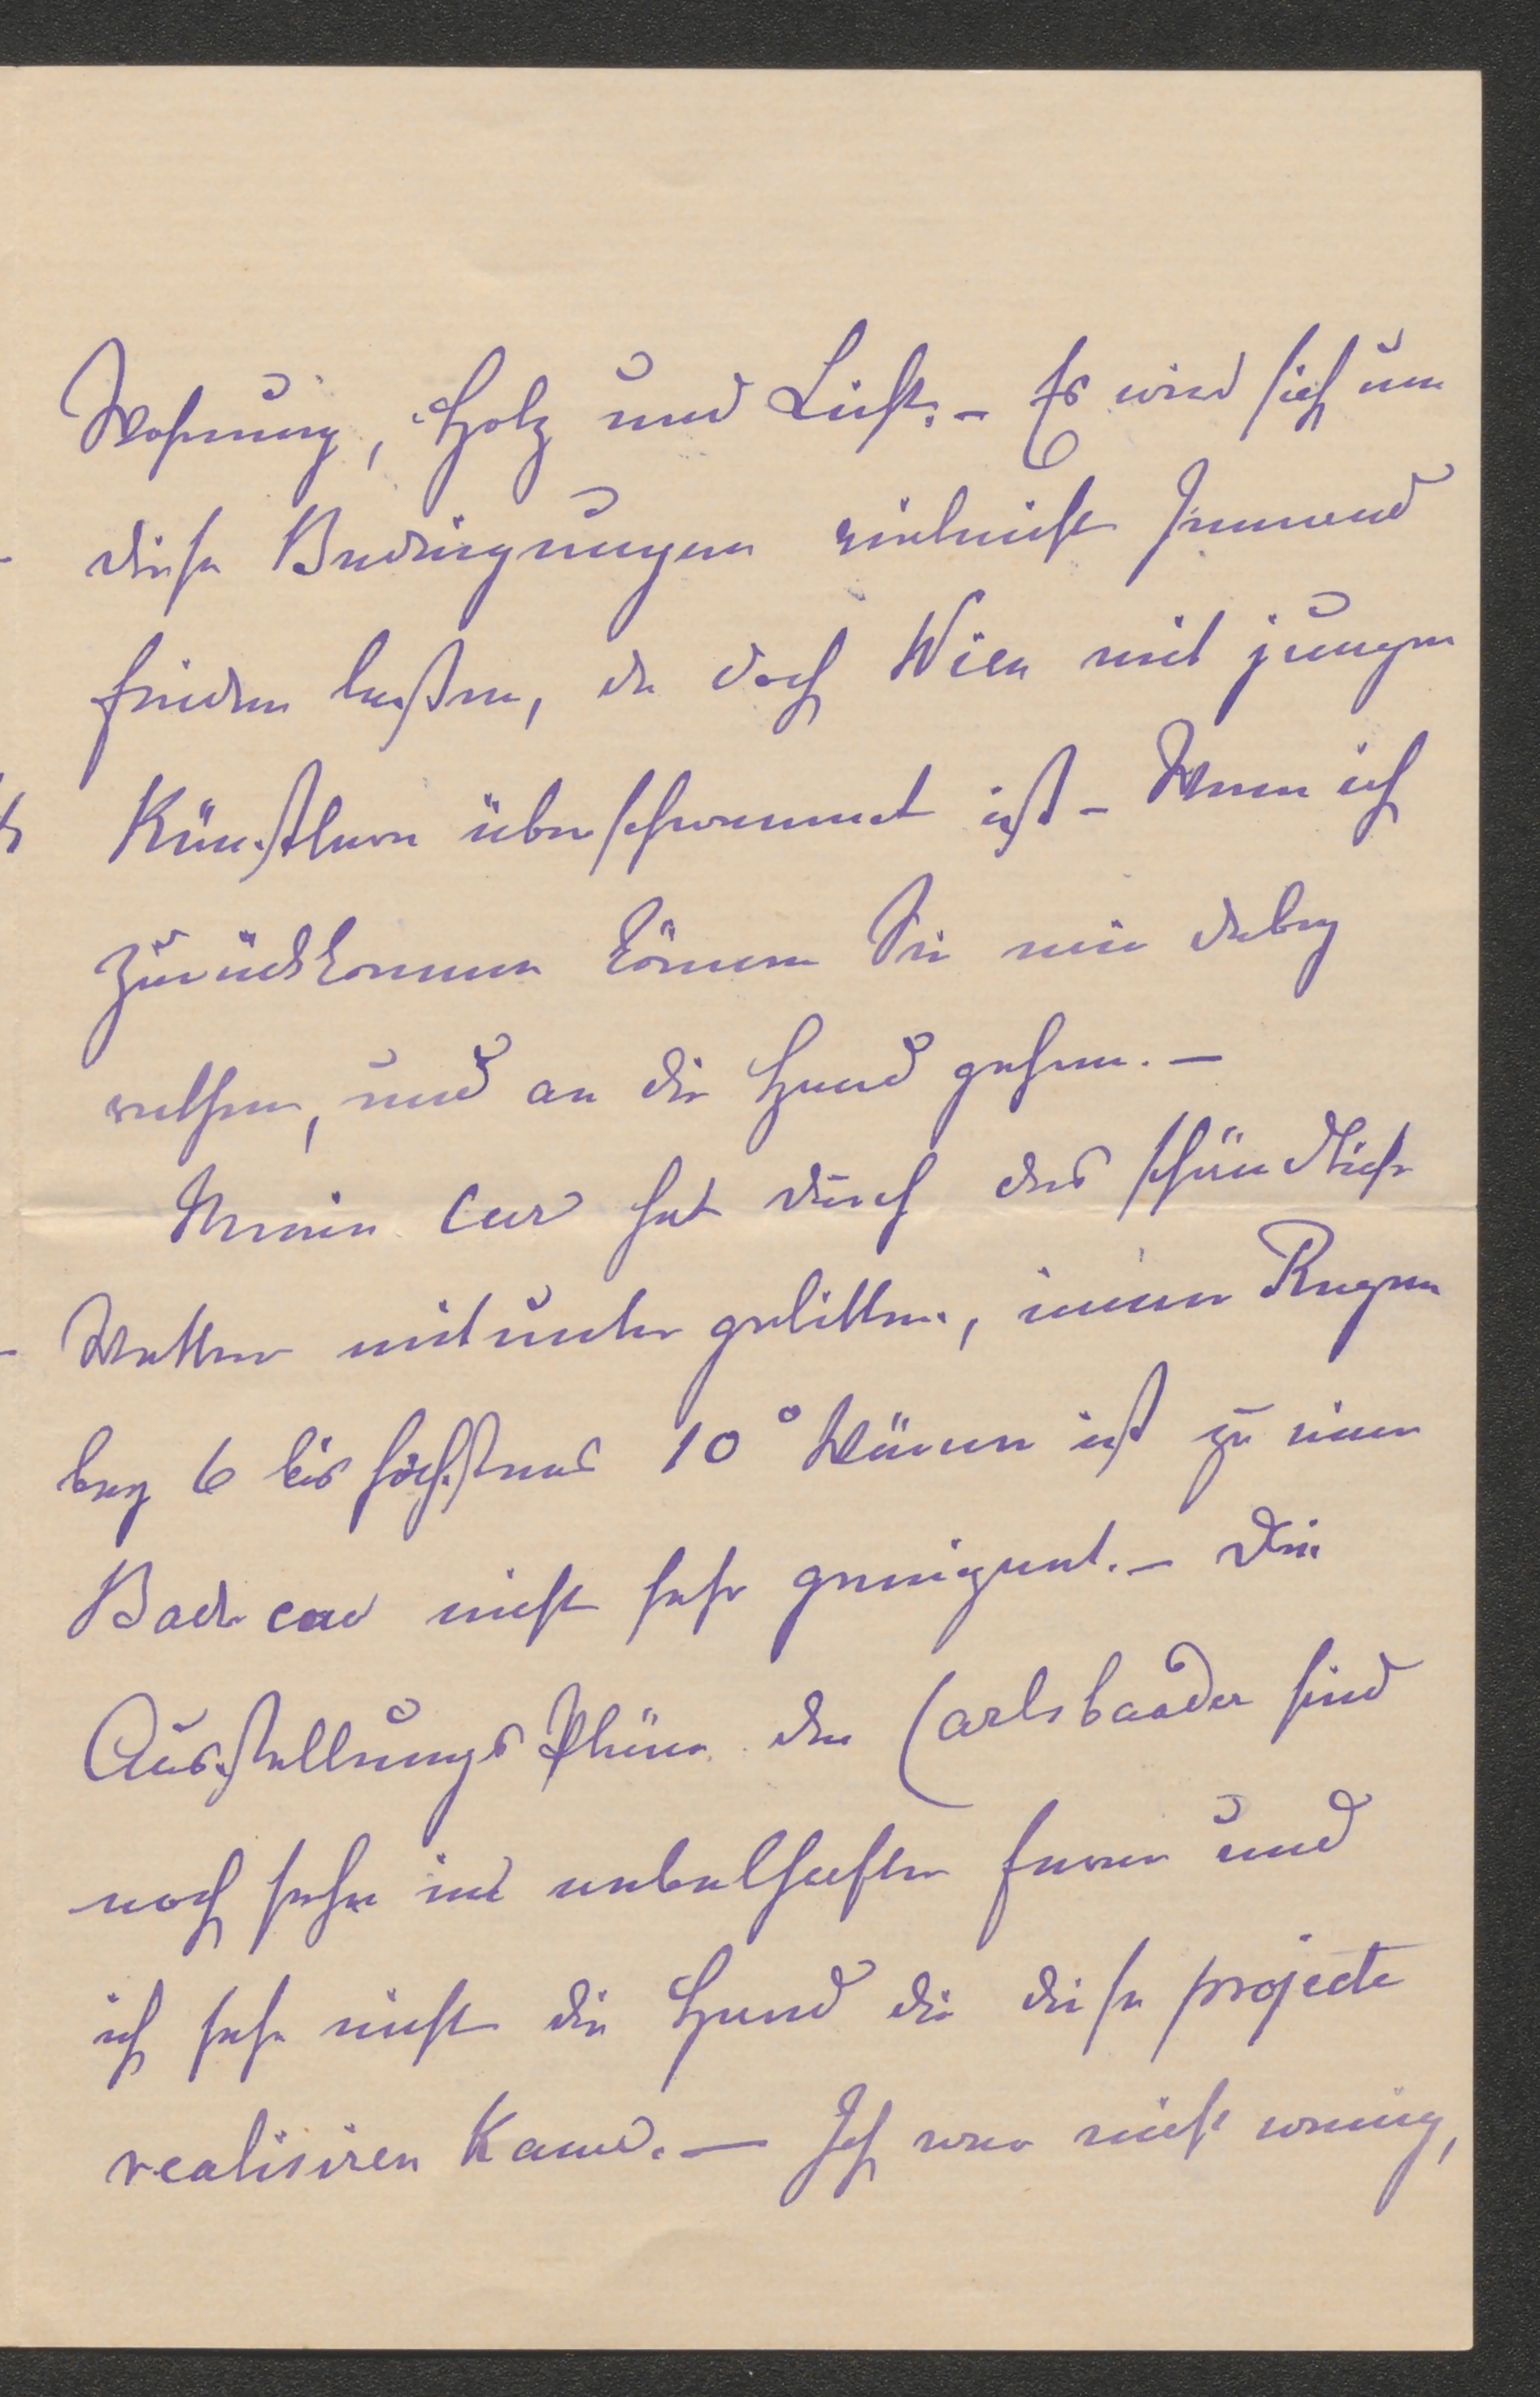 Wohnung, Holz und Licht. – Es wird sich um
diese Bedingungen vieleicht Jemand
finden laßen, da doch Wien mit jungen
Künstlern überschwemmt ist – Wenn ich
zurückkomme können Sie mir dabey
rathen, und an die Hand gehen. –
Meine Cur hat durch das schändliche
Wetter mitunter gelitten, immer Regen
bey 6 bis höchstens 10° Wärme ist zu einer
Badecur nicht sehr geeignet. – Die
Ausstellungs Pläne der Carlsbaader sind
noch sehr in nebelhafter Ferne und
ich sehe nicht die Hand die diese projecte
realisiren kann. – Ich war nicht wenig,